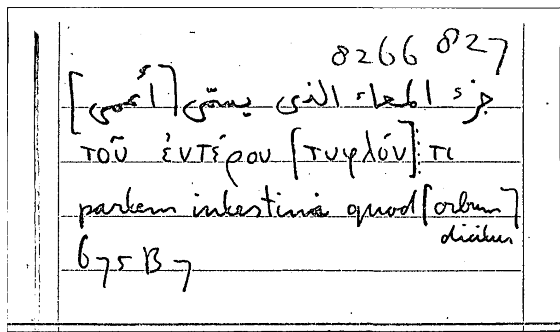 8266 827
جزء المعاء الذى يسمّى [أعمى]
τοῦ ἐντέρου [τυφλόν] τι
partem intestini quod [orbum]
dicitur
675 B 7